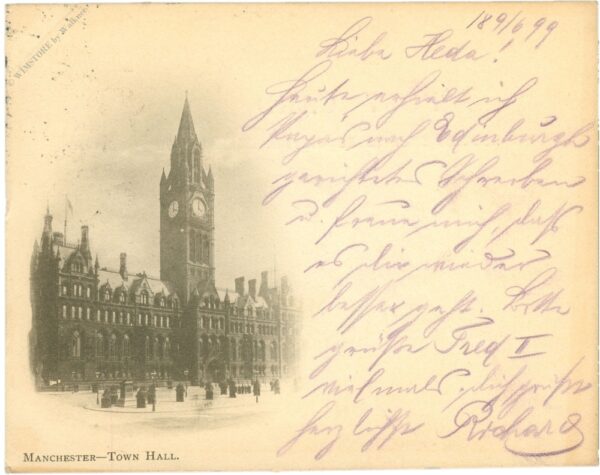 © WIMSTORE by Walknet
18 9/6 99
Liebe Heda!
Heute erhielt ich
Papas nach Edinburgh
gerichtetes Schreiben
u. freue mich, daß
es dir wieder
besser geht. Bitte
grüße Fred II
vielmals, dich grüßt
herzlichst Richard
MANCHESTER—TOWN HALL.